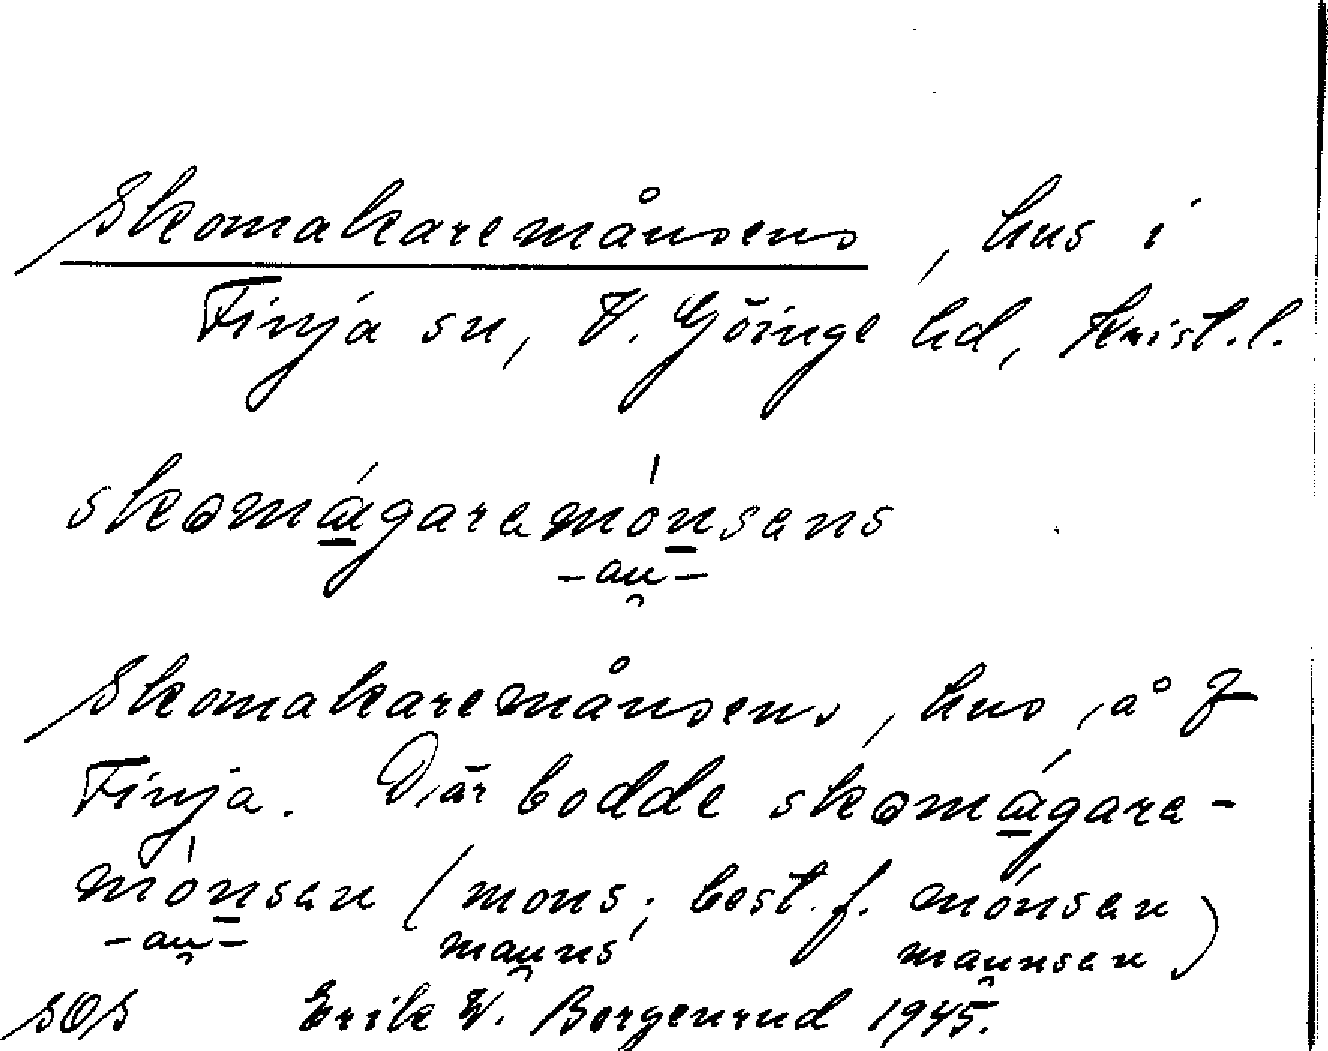 Skomakaremånsens, hus i
Finja sn, V. Göinge hd, Krist.l.
skomágaremónsens
-au-
Skomakaremånsens, hus, å
Finja. Där bodde skomágare-
mónsen (mons; best. f. mónsen
-au- mauns maunsen)
SOS Erik W. Bergenrud 1945.